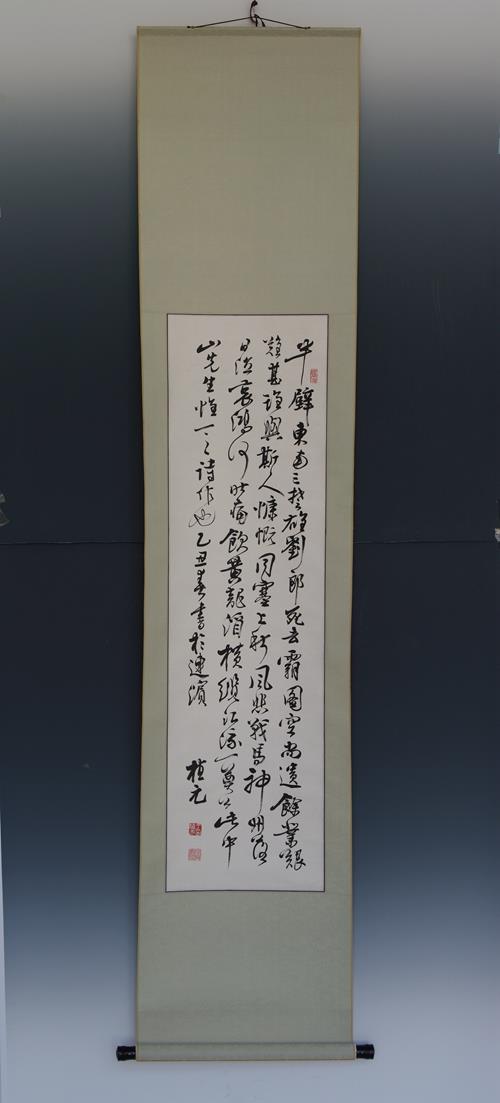 半壁東南三楚雄劉郎死去霸圖空尚遺餘業艱
難甚誰與斯人慷慨同塞上秋風悲戰馬神州落
日泣哀鴻何時痛飲黃龍酒橫攬江流一奠公此中
山先生惟一之詩作也乙丑春書於連濱
植元